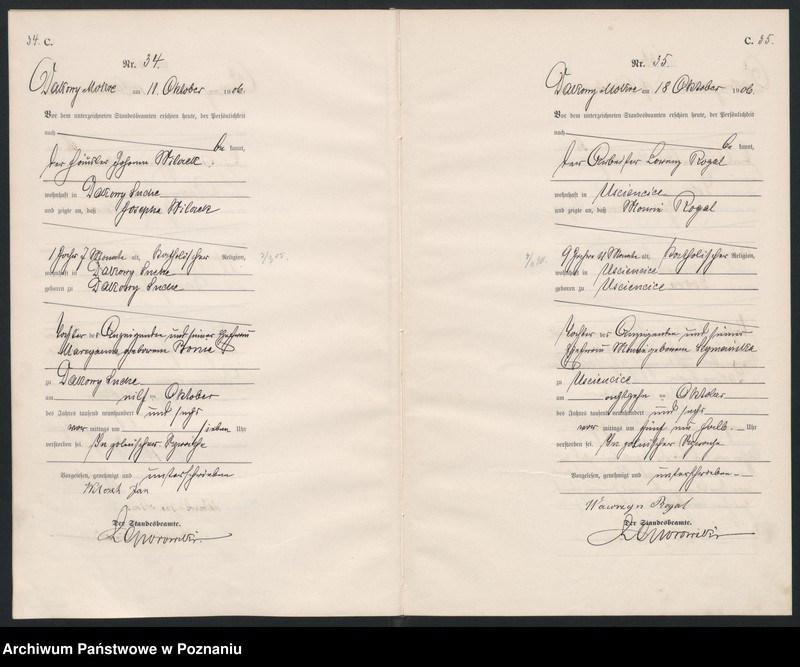 34. C.
Nr. 34.
Dakowy Mokre am 11. Oktober 1906.
Vor dem unterzeichneten Standesbeamten erschien heute, der Persönlichkeit
nach
be kannt,
der Häusler Johann
wohnhaft in Dakowy Suche
und zeigte an, daß Josepha
1 Jahr 7 Monate alt, Katholischer Religion,
wohnhaft in Dakowy Suche
geboren zu Dakowy Suche
Tochter des Anzeigenden und seiner Ehefrau
Maryanna geborenen
zu Dakowy Suche
am elf ten Oktober
des Jahres tausend neunhundert und sechs
vor mittags um sieben Uhr
verstorben sei. In polnischer Sprache
Vorgelesen, genehmigt und unterschrieben
Jan
Der Standesbeamte.
C. 35.
Nr. 35.
Dakowy Mokre am 18 Oktober 1906.
Vor dem unterzeichneten Standesbeamten erschien heute, der Persönlichkeit
nach
be kannt,
der Arbeiter Lorenz Rogal
wohnhaft in Usciencice
und zeigte an, daß Rogal
9 Jahre 11 Monate alt, Katholischer Religion,
wohnhaft in Usciencice
geboren zu Usciencice
Tochter des Anzeigenden und seiner
Ehefrau geborenen
zu Usciencice
am achtzehn ten Oktober
des Jahres tausend neunhundert und sechs
vor mittags um fünf ein halb Uhr
verstorben sei. In polnischer Sprache
Vorgelesen, genehmigt und unterschrieben
Wawrzyn Rogal
Der Standesbeamte.
Archiwum Państwowe w Poznaniu